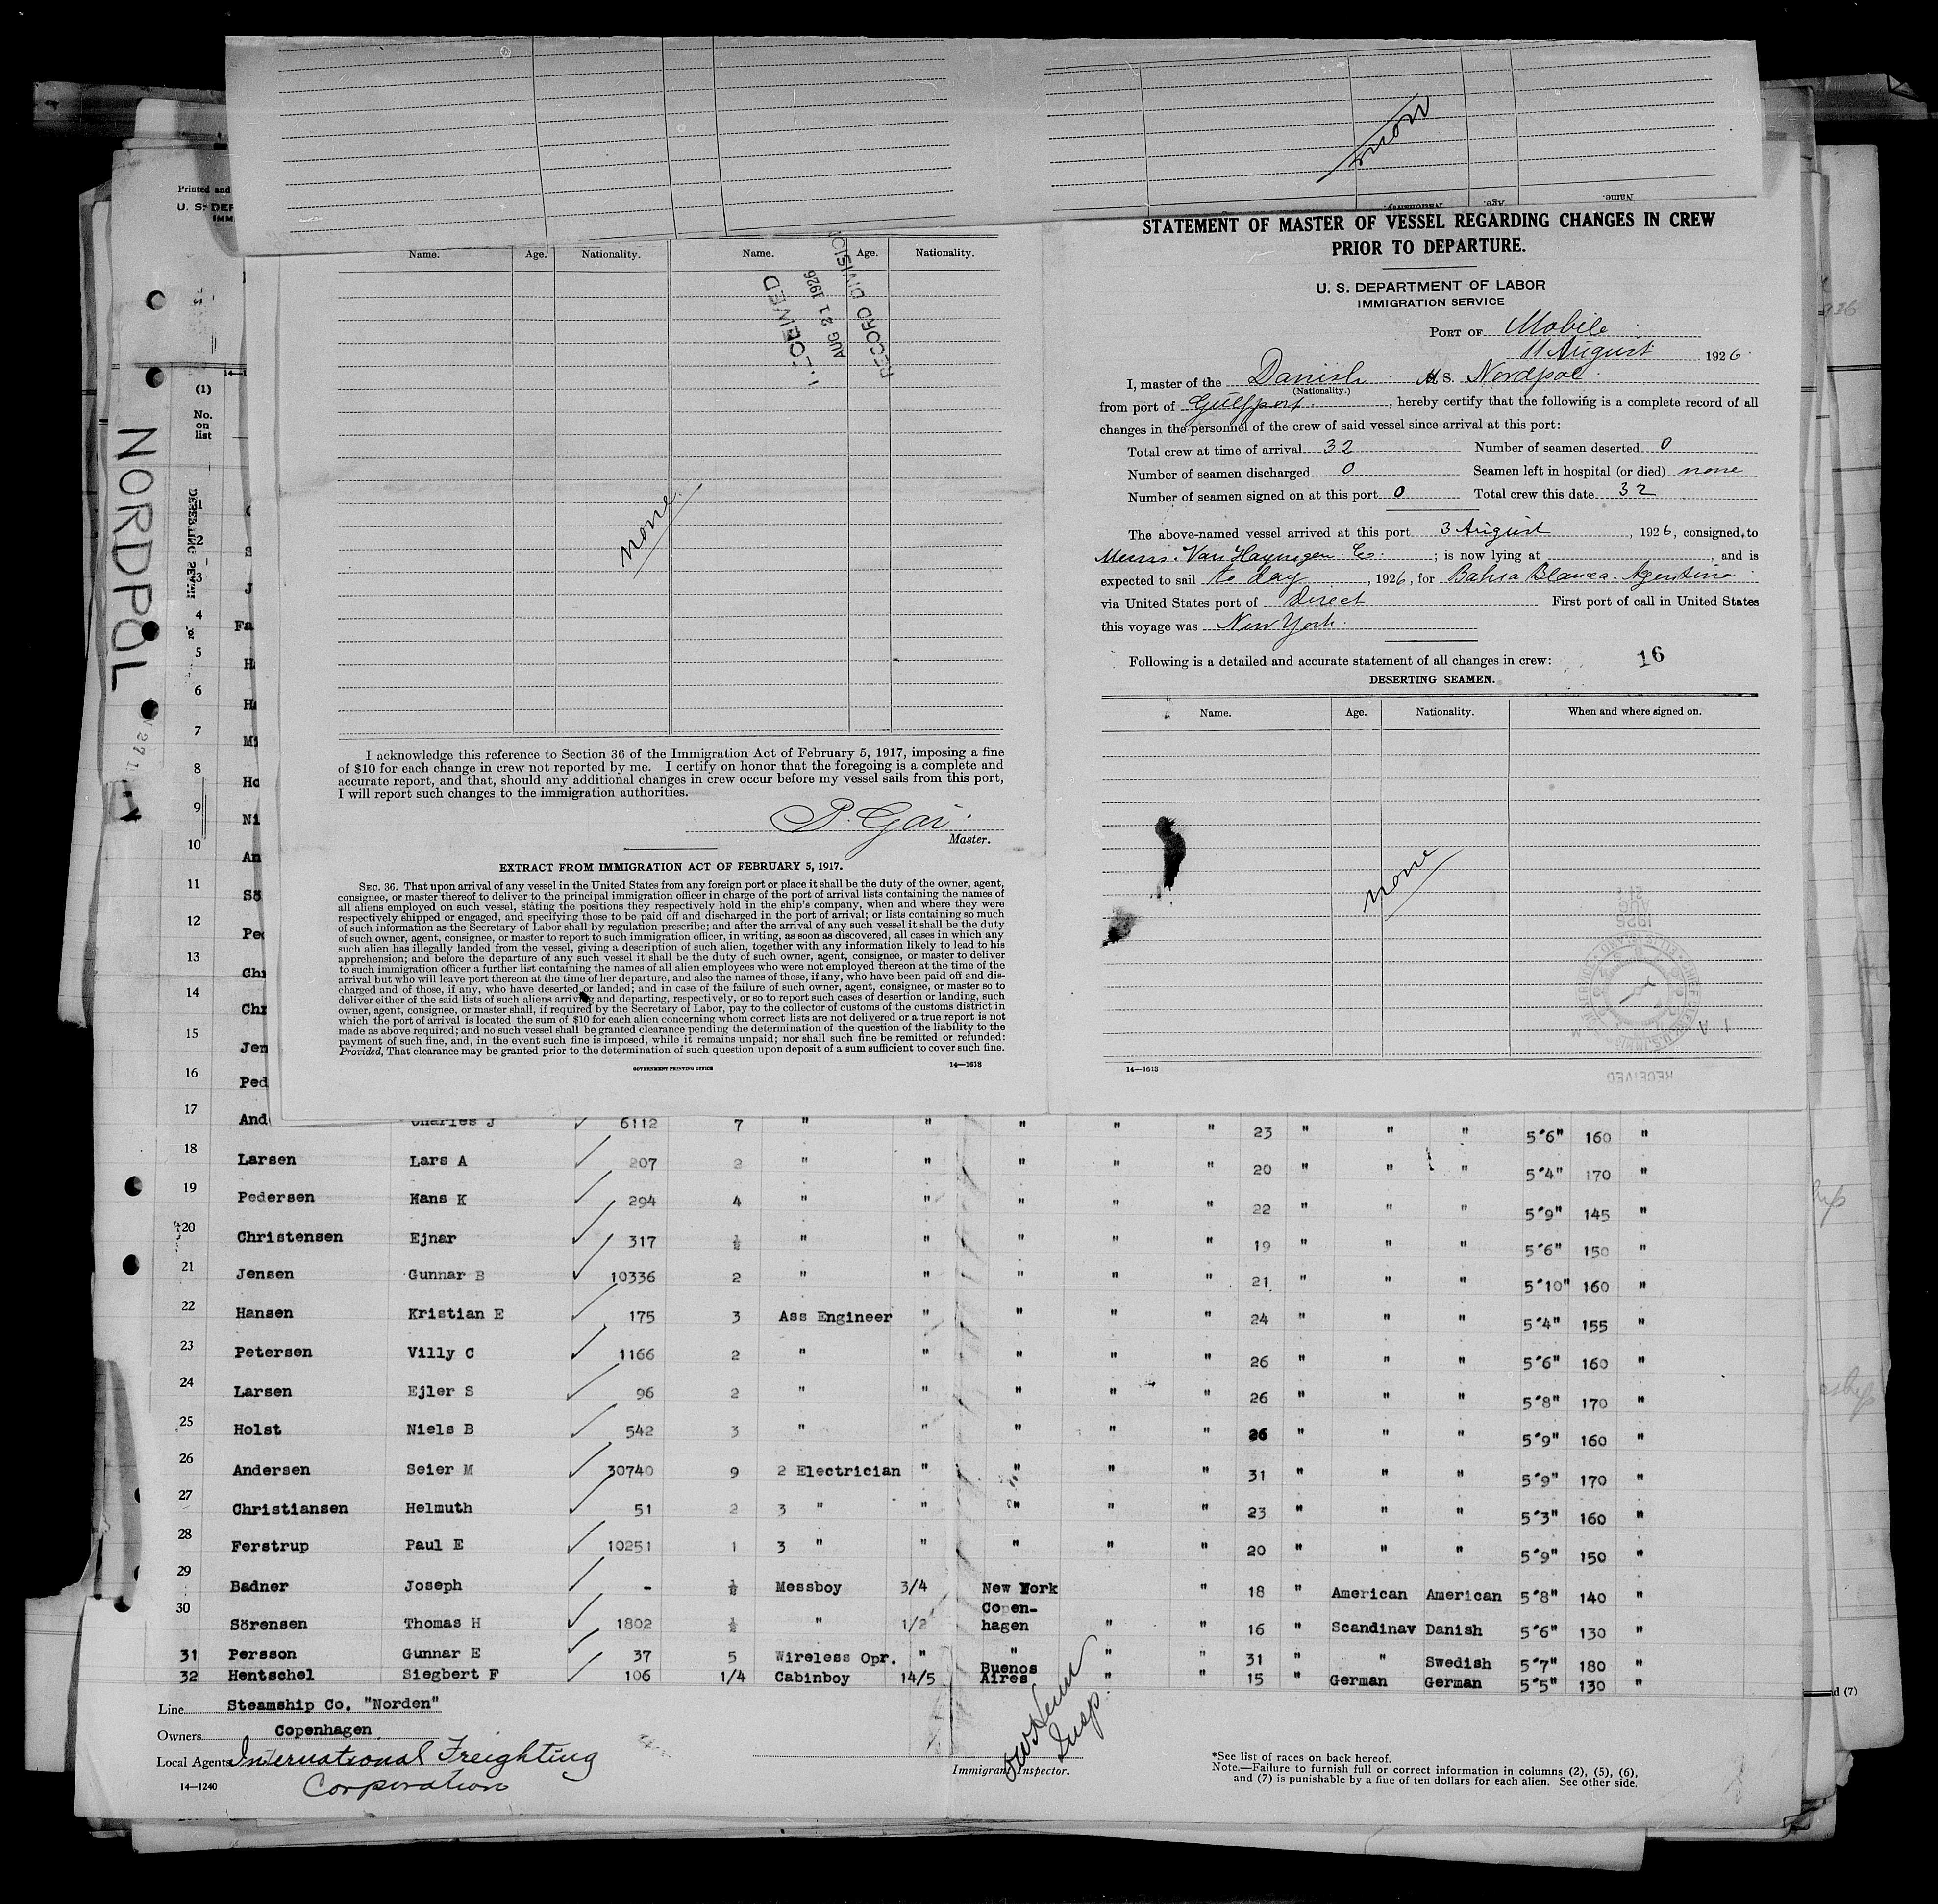 none
Name. Age. Nationality.
Printed and
U. S. DEP
IMM
NORDPOL
(1)
No.
on
list
Name. Age. Nationality. Name. Age. Nationality.
RECEIVED
AUG 21 1926
RECORD DIVISION
none
I acknowledge this reference to Section 36 of the Immigration Act of February 5, 1917, imposing a fine
of $10 for each change in crew not reported by me. I certify on honor that the foregoing is a complete and
accurate report, and that, should any additional changes in crew occur before my vessel sails from this port,
I will report such changes to the immigration authorities.
P. Gai
Master.
EXTRACT FROM IMMIGRATION ACT OF FEBRUARY 5, 1917.
SEC. 36. That upon arrival of any vessel in the United States from any foreign port or place it shall be the duty of the owner, agent,
consignee, or master thereof to deliver to the principal immigration officer in charge of the port of arrival lists containing the names of
all aliens employed on such vessel, stating the positions they respectively hold in the ship's company, when and where they were
respectively shipped or engaged, and specifying those to be paid off and discharged in the port of arrival; or lists containing so much
of such information as the Secretary of Labor shall by regulation prescribe; and after the arrival of any such vessel it shall be the duty
of such owner, agent, consignee, or master to report to such immigration officer, in writing, as soon as discovered, all cases in which any
such alien has illegally landed from the vessel, giving a description of such alien, together with any information likely to lead to his
apprehension; and before the departure of any such vessel it shall be the duty of such owner, agent, consignee, or master to deliver
to such immigration officer a further list containing the names of all alien employees who were not employed thereon at the time of the
arrival but who will leave port thereon at the time of her departure, and also the names of those, if any, who have been paid off and dis-
charged and of those, if any, who have deserted or landed; and in case of the failure of such owner, agent, consignee, or master so to
deliver either of the said lists of such aliens arriving and departing, respectively, or so to report such cases of desertion or landing, such
owner, agent, consignee, or master shall, if required by the Secretary of Labor, pay to the collector of customs of the customs district in
which the port of arrival is located the sum of $10 for each alien concerning whom correct lists are not delivered or a true report is not
made as above required; and no such vessel shall be granted clearance pending the determination of the question of the liability to the
payment of such fine, and, in the event such fine is imposed, while it remains unpaid; nor shall such fine be remitted or refunded:
Provided, That clearance may be granted prior to the determination of such question upon deposit of a sum sufficient to cover such fine.
GOVERNMENT PRINTING OFFICE 14—1613
STATEMENT OF MASTER OF VESSEL REGARDING CHANGES IN CREW
PRIOR TO DEPARTURE.
U. S. DEPARTMENT OF LABOR
IMMIGRATION SERVICE
PORT OF Mobile
11 August 1926
I, master of the Danish M S. Nordpol
(Nationality.)
from port of Gulfport, hereby certify that the following is a complete record of all
changes in the personnel of the crew of said vessel since arrival at this port:
Total crew at time of arrival 32 Number of seamen deserted 0
Number of seamen discharged 0 Seamen left in hospital (or died) none
Number of seamen signed on at this port 0 Total crew this date 32
The above-named vessel arrived at this port 3 August, 1926, consigned to
Messrs. Van Heyningen Co.; is now lying at , and is
expected to sail to day, 1926, for Bahia Blanca. Agentina
via United States port of direct First port of call in United States
this voyage was New York.
Following is a detailed and accurate statement of all changes in crew: 16
DESERTING SEAMEN.
Name. Age. Nationality. When and where signed on.
none
1926
AUG
RECEIVED
14—1613
2
3 J
4 Fa
5 H
6 H
7 Mi
8 Ho
9 Ni
10 An
11 Sö
12 Ped
13 Chr
14 Chr
15 Jen
16 Ped
17 And Charles J 6112 7 " " " " " 23 " " " 5'6" 160 "
18 Larsen Lars A 207 2 " " " " " 20 " " " 5'4" 170 "
19 Pedersen Hans K 294 4 " " " " " 22 " " " 5'9" 145 "
20 Christensen Ejnar 317 ½ " " " " " 19 " " " 5'6" 150 "
21 Jensen Gunnar B 10336 2 " " " " " 21 " " " 5'10" 160 "
22 Hansen Kristian E 175 3 Ass Engineer " " " " 24 " " " 5'4" 155 "
23 Petersen Villy C 1166 2 " " " " " 26 " " " 5'6" 160 "
24 Larsen Ejler S 96 2 " " " " " 26 " " " 5'8" 170 "
25 Holst Niels B 542 3 " " " " " 26 " " " 5'9" 160 "
26 Andersen Seier M 30740 9 2 Electrician " " " " 31 " " " 5'9" 170 "
27 Christiansen Helmuth 51 2 3 " " " " " 23 " " " 5'3" 160 "
28 Ferstrup Paul E 10251 1 3 " " " " " 20 " " " 5'9" 150 "
29 Badner Joseph - ½ Messboy 3/4 New York " 18 " American American 5'8" 140 "
30 Sörensen Thomas H 1802 ½ " 1/2 Copen-
hagen " " 16 " Scandinav Danish 5'6" 130 "
31 Persson Gunnar E 37 5 Wireless Opr. " " " 31 " " Swedish 5'7" 180 "
32 Hentschel Siegbert F 106 1/4 Cabinboy 14/5 Buenos
Aires " " 15 " German German 5'5" 130 "
Line Steamship Co. "Norden"
Owners Copenhagen
Local Agents International Freighting
Corporation
14—1240
Insp.
Immigrant Inspector.
*See list of races on back hereof.
Note.—Failure to furnish full or correct information in columns (2), (5), (6),
and (7) is punishable by a fine of ten dollars for each alien. See other side.
d (7)